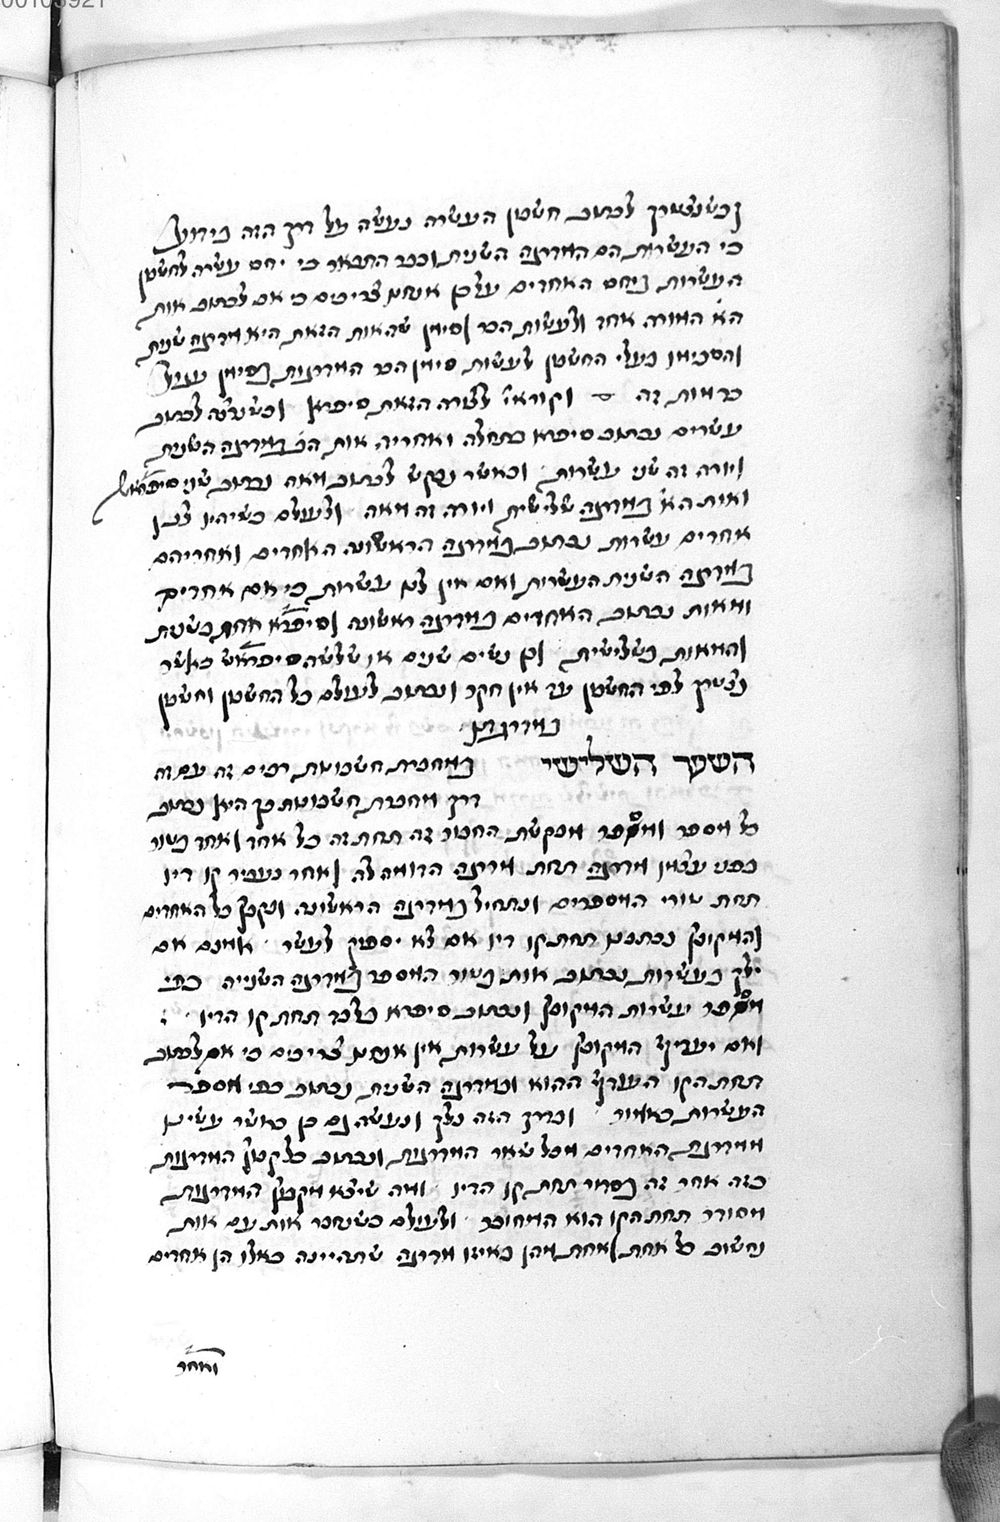 וכשנצטרך לכתוב חשבון העשרה נעשה על דרך הזה בידוע
כי העשרות הם המדרגה השנית וכבר התבאר כי יחס עשרה לחשבון
העשרות כיחס האחדים עלכן אין אנחנו צריכים כי אם לכתוב אות
הא׳ המורה אחד ולעשות הכר וסימן שהאות הזאת היא מדרגה שנית
והסכימו בעלי החשבון לעשות סימן הכר המדרגות בסימן עגול
כדמות זה ס וקורא׳ לצורה הזאת סיפרא וכשנרצה לכתוב
עשרים נכתוב סיפרא בתחלה ואחריה אות הב׳ במדרגה השנית
ויורה זה שני עשרות וכאשר נבקש לכתוב מאה נכתוב שני סיפראש
ואות הא׳ במדרגה שלישית ויורה זה מאה ולעולם כשיהיו לנו
אחדים עשרות נכתוב במדרגה הראשונה האחדים ואחריהם
במדרגה השנית העשרות ואם אין לנו עשרות כי אם אחדים
ומאות נכתוב האחדים במדרגה ראשונה וסיפרא אחת בשנית
והמאות בשלישית וכן נשים שנים או שלשה סיפראש כאשר
נצטרך לפי החשבון עד אין חקר ונכתוב לעולם כל החשבון וחשבון
במדרגתו
השער השלישי במחברת חשבונות רבים זה עם זה
דרך מחברת חשבונות כך היא נכתוב
כל מספר ומספר מבקשת החבור זה תחת זה כל אחד ואחד בטור
בפני עצמו מדרגה תחת מדרגה הדומה לה ואחר נעביר קו דיו
תחת טורי המספרים ונתחיל במדרגה הראשונה ונקבץ כל האחדים
והמקובץ נכתבנו תחת קו דיו אם לא יספיק לעשר אמנם אם
ילך בעשרות נכתוב אותו בטור המספר במדרגה השנייה כפי
מספר עשרות המקובץ ונכתוב סיפרא בלבד תחת קו הדיו :
ואם יעדיף המקובץ על עשרות אין אנחנו צריכים כי אם לכתוב
תחת הקו העודף ההוא ובמדרגה השנית נכתוב כפי מספר
העשרות כאמור ובדרך הזה נלך ונעשה גם כן כאשר עשינו
ממדרגת האחדים מכל שאר המדרגות ונכתוב כל קבוץ המדרגות
בזה אחר זה בסדור תחת קו הדיו ומה שיצא מקבוץ המדרגות
מסודר תחת הקו הוא המחובר ולעולם כשנחבר אות עם אות
נחשוב כל אחת ואחת מהן באיזו מדרגה שתהיינה כאלו הן אחדים
ואחר